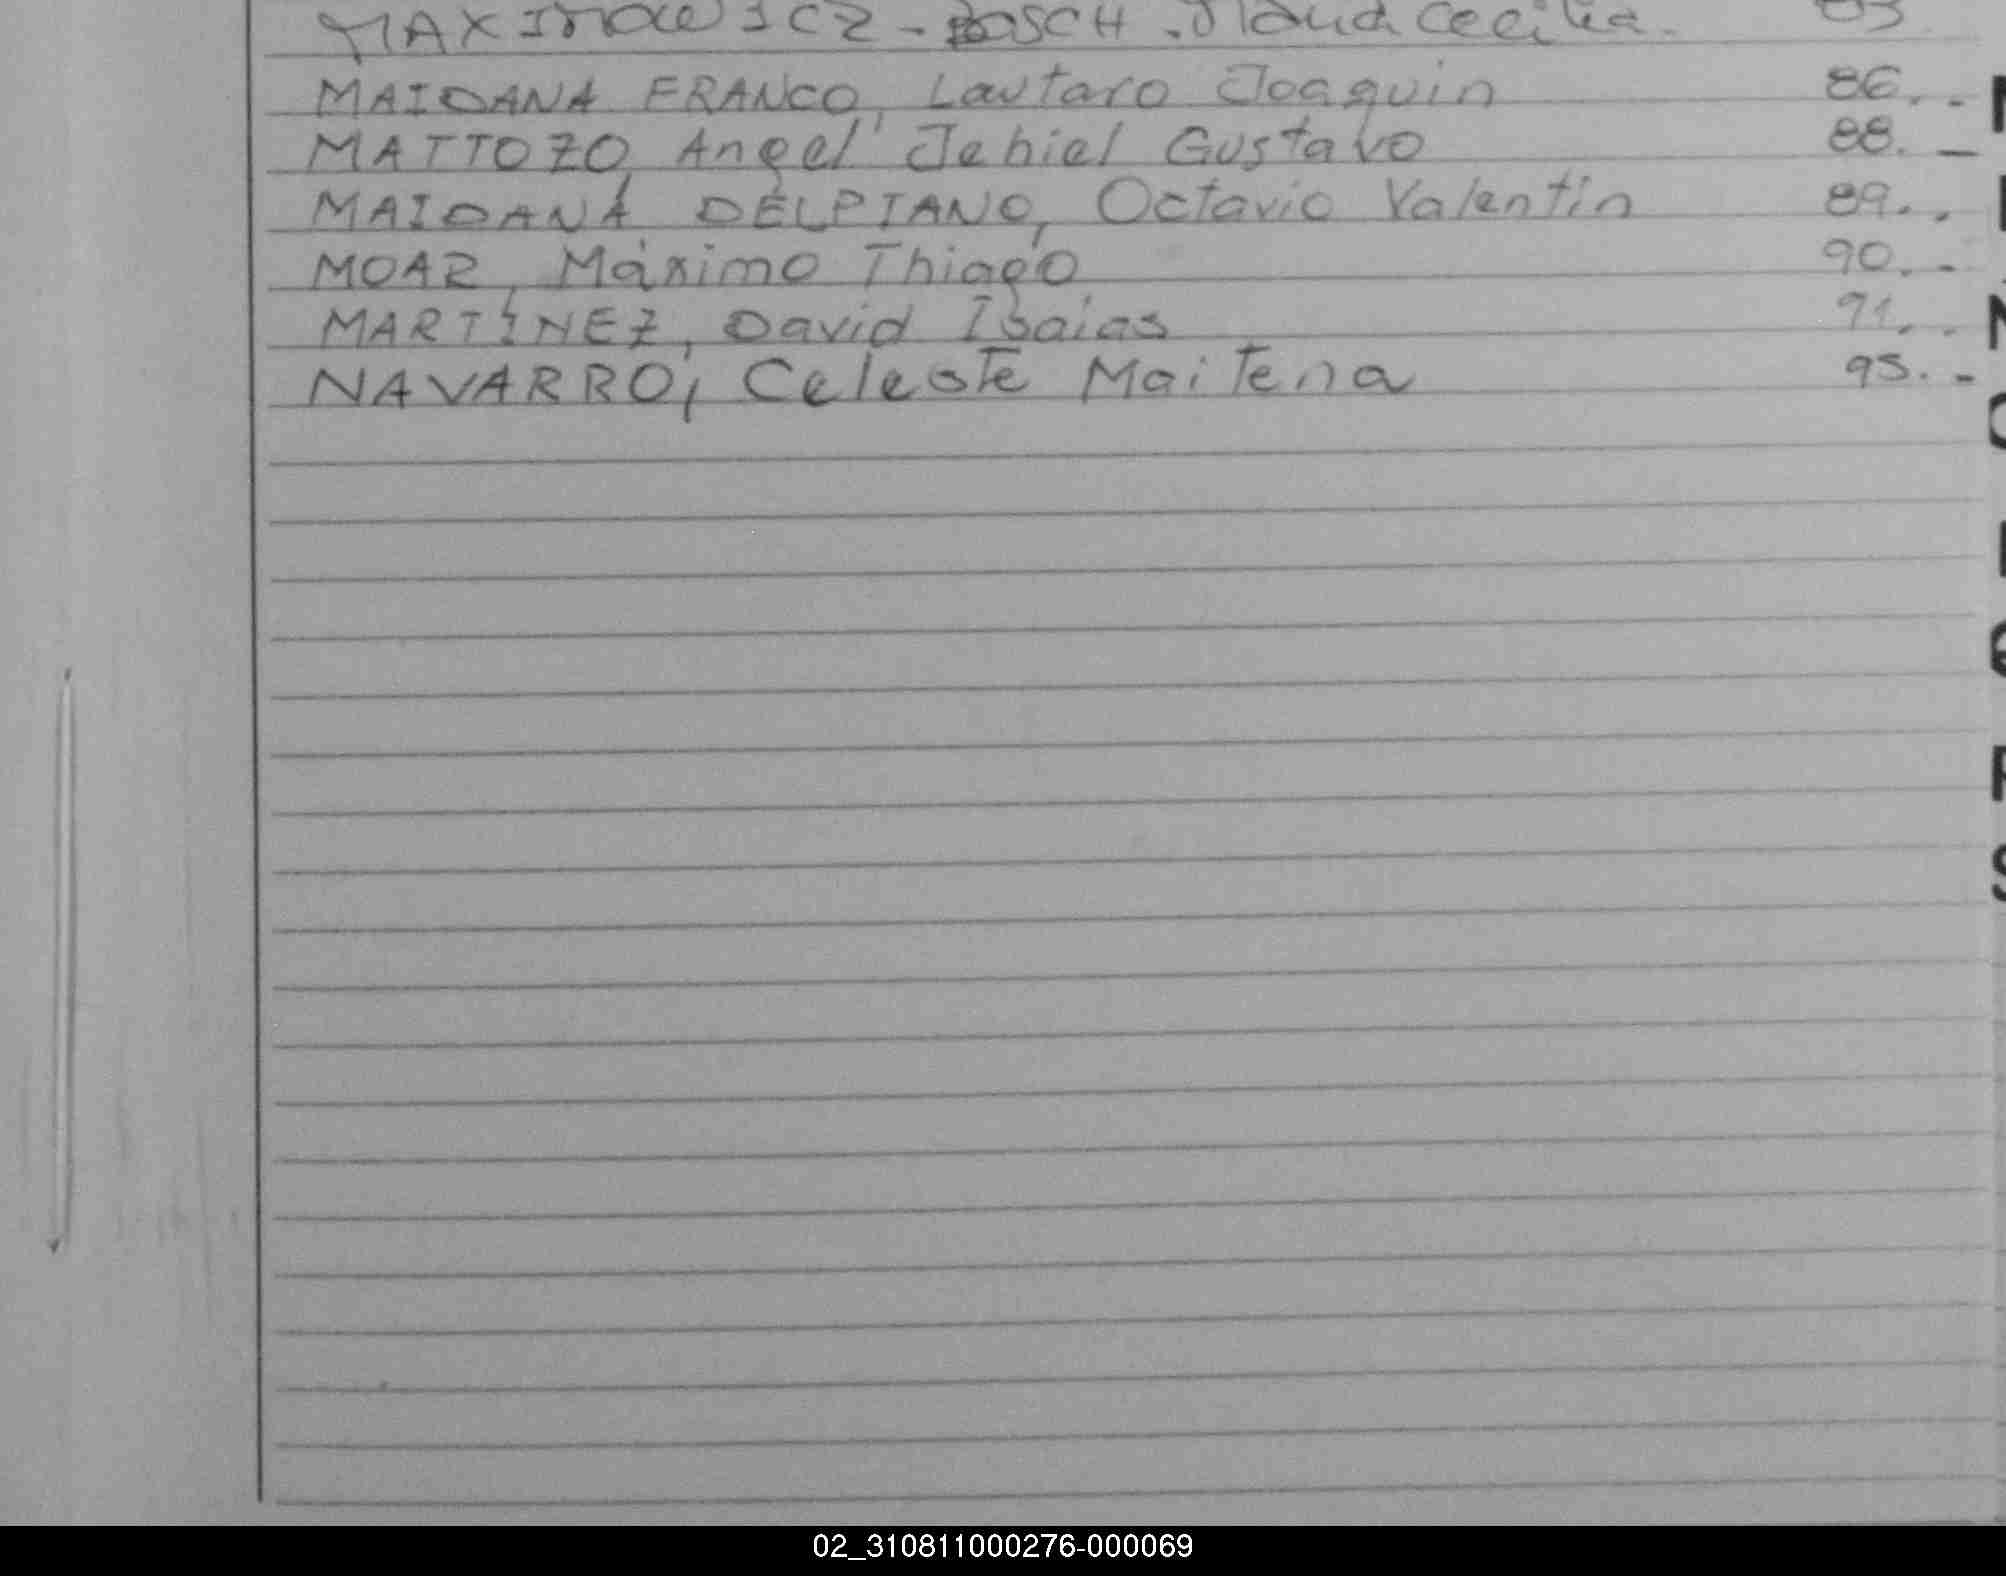 MAXIMOWICZ-BOSCH. Maud Cecilia.
MAIDANA FRANCO, Lautaro Joaquin 86.-
MATTOZO, Angel Jehiel Gustavo 88.-
MAIDANA DELPIANO, Octavio Valentín 89.-
MOAR, Máximo Thiago 90.-
MARTÍNEZ, David Isaias 91.-
NAVARRO, Celeste Maitena 95.-
02_310811000276-000069